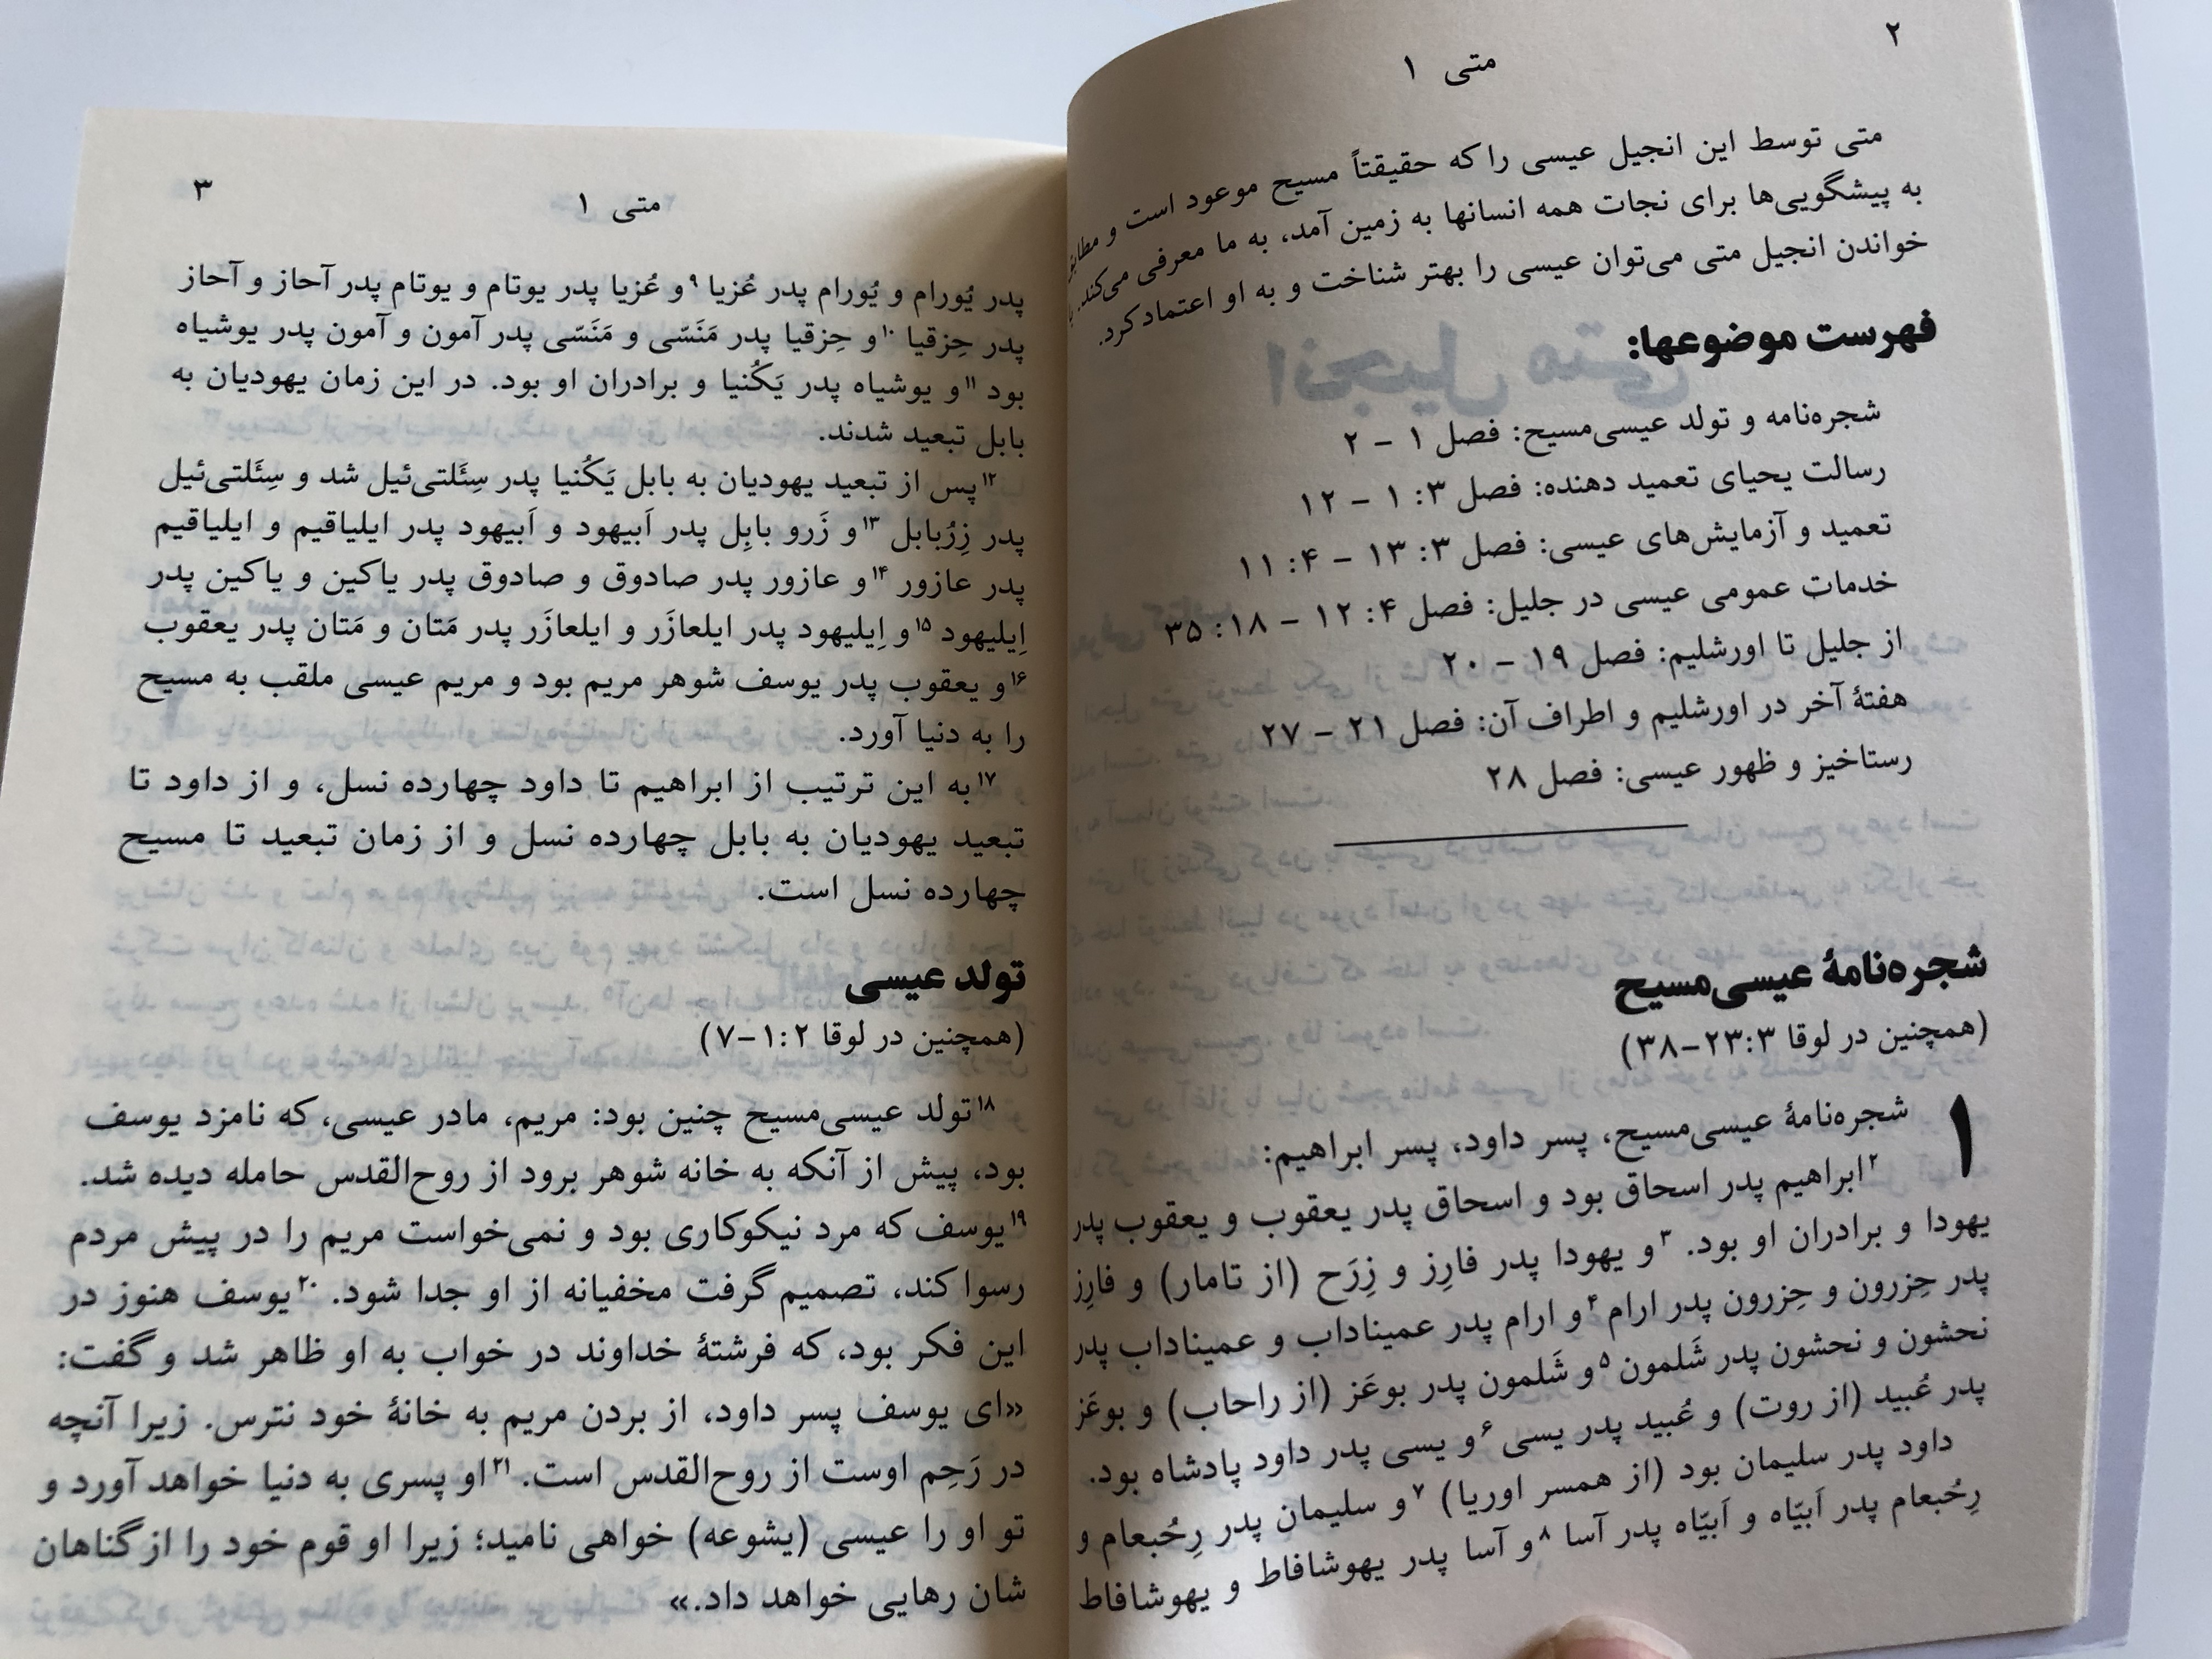 ۲
متی ۱
متی توسط این انجیل عیسی را که حقیقتاً مسیح موعود است و مطابق
به پیشگویی‌ها برای نجات همه انسانها به زمین آمد، به ما معرفی می‌کند.
خواندن انجیل متی می‌توان عیسی را بهتر شناخت و به او اعتماد کرد.
فهرست موضوعها:
شجره‌نامه و تولد عیسی‌مسیح: فصل ۱ – ۲
رسالت یحیای تعمید دهنده: فصل ۳: ۱ – ۱۲
تعمید و آزمایش‌های عیسی: فصل ۳: ۱۳ – ۴: ۱۱
خدمات عمومی عیسی در جلیل: فصل ۴: ۱۲ – ۱۸: ۳۵
از جلیل تا اورشلیم: فصل ۱۹ – ۲۰
هفتهٔ آخر در اورشلیم و اطراف آن: فصل ۲۱ – ۲۷
رستاخیز و ظهور عیسی: فصل ۲۸
شجره‌نامهٔ عیسی‌مسیح
(همچنین در لوقا ۳:‏۲۳–۳۸)
۱ شجره‌نامهٔ عیسی‌مسیح، پسر داود، پسر ابراهیم:
۲ابراهیم پدر اسحاق بود و اسحاق پدر یعقوب و یعقوب پدر
یهودا و برادران او بود. ۳و یهودا پدر فارِز و زِرَح (از تامار) و فارِز
پدر حِزرون و حِزرون پدر ارام ۴و ارام پدر عمیناداب و عمیناداب پدر
نحشون و نحشون پدر شَلمون ۵و شَلمون پدر بوعَز (از راحاب) و بوعَز
پدر عُبید (از روت) و عُبید پدر یسی ۶و یسی پدر داود پادشاه بود.
داود پدر سلیمان بود (از همسر اوریا) ۷و سلیمان پدر رِحُبعام و
رِحُبعام پدر اَبیّاه و اَبیّاه پدر آسا ۸و آسا پدر یهوشافاط و یهوشافاط
۳
متی ۱
پدر یُورام و یُورام پدر عُزیا ۹و عُزیا پدر یوتام و یوتام پدر آحاز و آحاز
پدر حِزقیا ۱۰و حِزقیا پدر مَنَسّی و مَنَسّی پدر آمون و آمون پدر یوشیاه
بود ۱۱و یوشیاه پدر یَکُنیا و برادران او بود. در این زمان یهودیان به
بابل تبعید شدند.
۱۲پس از تبعید یهودیان به بابل یَکُنیا پدر سِئَلتی‌ئیل شد و سِئَلتی‌ئیل
پدر زِرُبابل ۱۳و زَرو بابِل پدر اَبیهود و اَبیهود پدر ایلیاقیم و ایلیاقیم
پدر عازور ۱۴و عازور پدر صادوق و صادوق پدر یاکین و یاکین پدر
اِیلیهود ۱۵و اِیلیهود پدر ایلعازَر و ایلعازَر پدر مَتان و مَتان پدر یعقوب
۱۶و یعقوب پدر یوسف شوهر مریم بود و مریم عیسی ملقب به مسیح
را به دنیا آورد.
۱۷به این ترتیب از ابراهیم تا داود چهارده نسل، و از داود تا
تبعید یهودیان به بابل چهارده نسل و از زمان تبعید تا مسیح
چهارده نسل است.
تولد عیسی
(همچنین در لوقا ۲:‏۱–۷)
۱۸تولد عیسی‌مسیح چنین بود: مریم، مادر عیسی، که نامزد یوسف
بود، پیش از آنکه به خانه شوهر برود از روح‌القدس حامله دیده شد.
۱۹یوسف که مرد نیکوکاری بود و نمی‌خواست مریم را در پیش مردم
رسوا کند، تصمیم گرفت مخفیانه از او جدا شود. ۲۰یوسف هنوز در
این فکر بود، که فرشتهٔ خداوند در خواب به او ظاهر شد و گفت:
«ای یوسف پسر داود، از بردن مریم به خانهٔ خود نترس. زیرا آنچه
در رَحِم اوست از روح‌القدس است. ۲۱او پسری به دنیا خواهد آورد و
تو او را عیسی (یشوعه) خواهی نامید؛ زیرا او قوم خود را از گناهان
شان رهایی خواهد داد.»